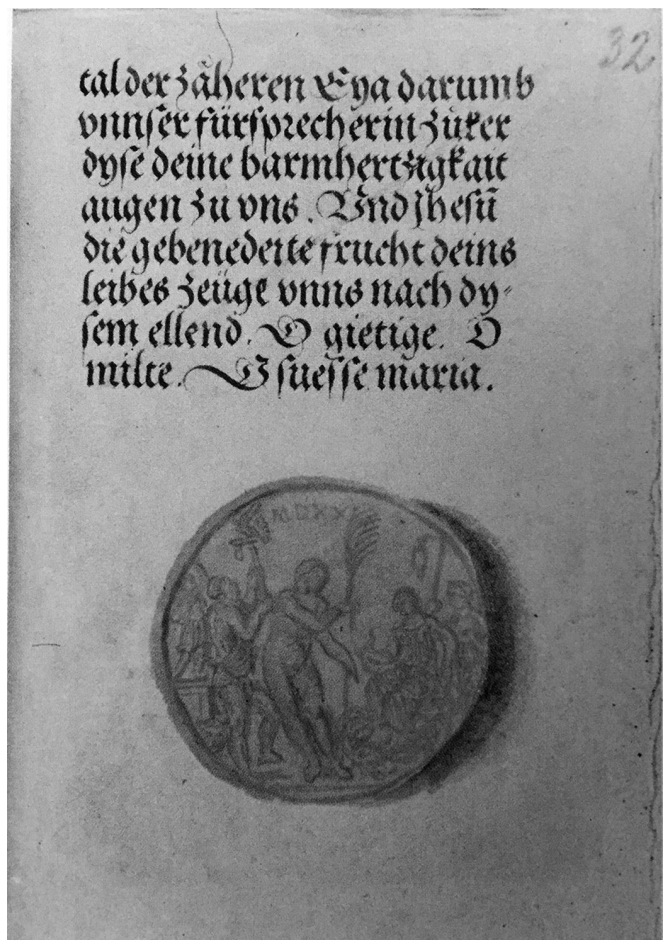 32
tal der zäheren Eya darumb
vnnser fürsprecherin zuker
dyse deine barmhertzigkait
augen zu vns. Vnd Jhesū
die gebenedeite frucht deins
leibes zeüge vnns nach dy-
sem ellend. O gietige. O
milte. O suesse maria.